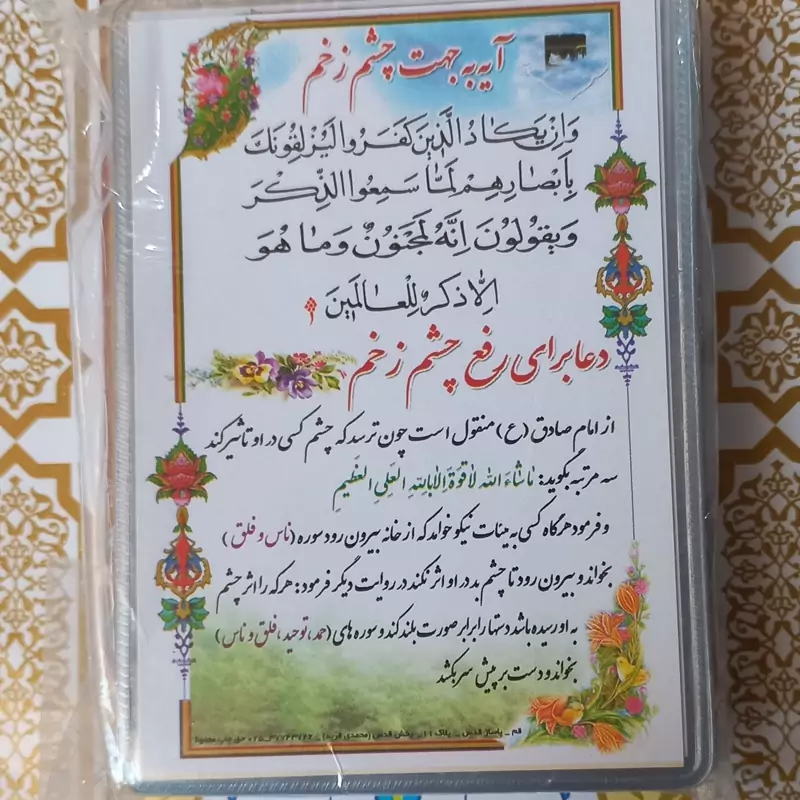 آیه به جهت چشم زخم
وَاِنْ یَکٰادُ الَّذینَ کَفَرُوا لَیُزْلِقُونَکَ
بِاَبْصٰارِهِمْ لَمّٰا سَمِعُوا الذِّکْرَ
وَیَقُولُونَ اِنَّهُ لَمَجْنُونٌ وَمٰا هُوَ
اِلّٰا ذِکْرٌ لِلْعٰالَمینَ
دعا برای رفع چشم زخم
از امام صادق (ع) منقول است چون ترسد که چشم کسی در او تاثیر کند
سه مرتبه بگوید: مٰاشٰاءَ الله لاٰقُوَّةَ اِلاّٰ بِاللهِ العَلِیِ العَظیمِ
و فرمود هرگاه کسی به هیئات نیکو خواهد که از خانه بیرون رود سوره (ناس و فلق)
بخواند و بیرون رود تا چشم بد در او اثر نکند در روایت دیگر فرمود: هر که را اثر چشم
به او رسیده باشد دستها را برابر صورت بلند کند و سوره های (حمد، توحید، فلق و ناس)
بخواند و دست بر پیش سر بکشد
قم - پاساژ قدس - پلاک ۱۱ - پخش قدس (محمدی فرید) - حق چاپ محفوظ